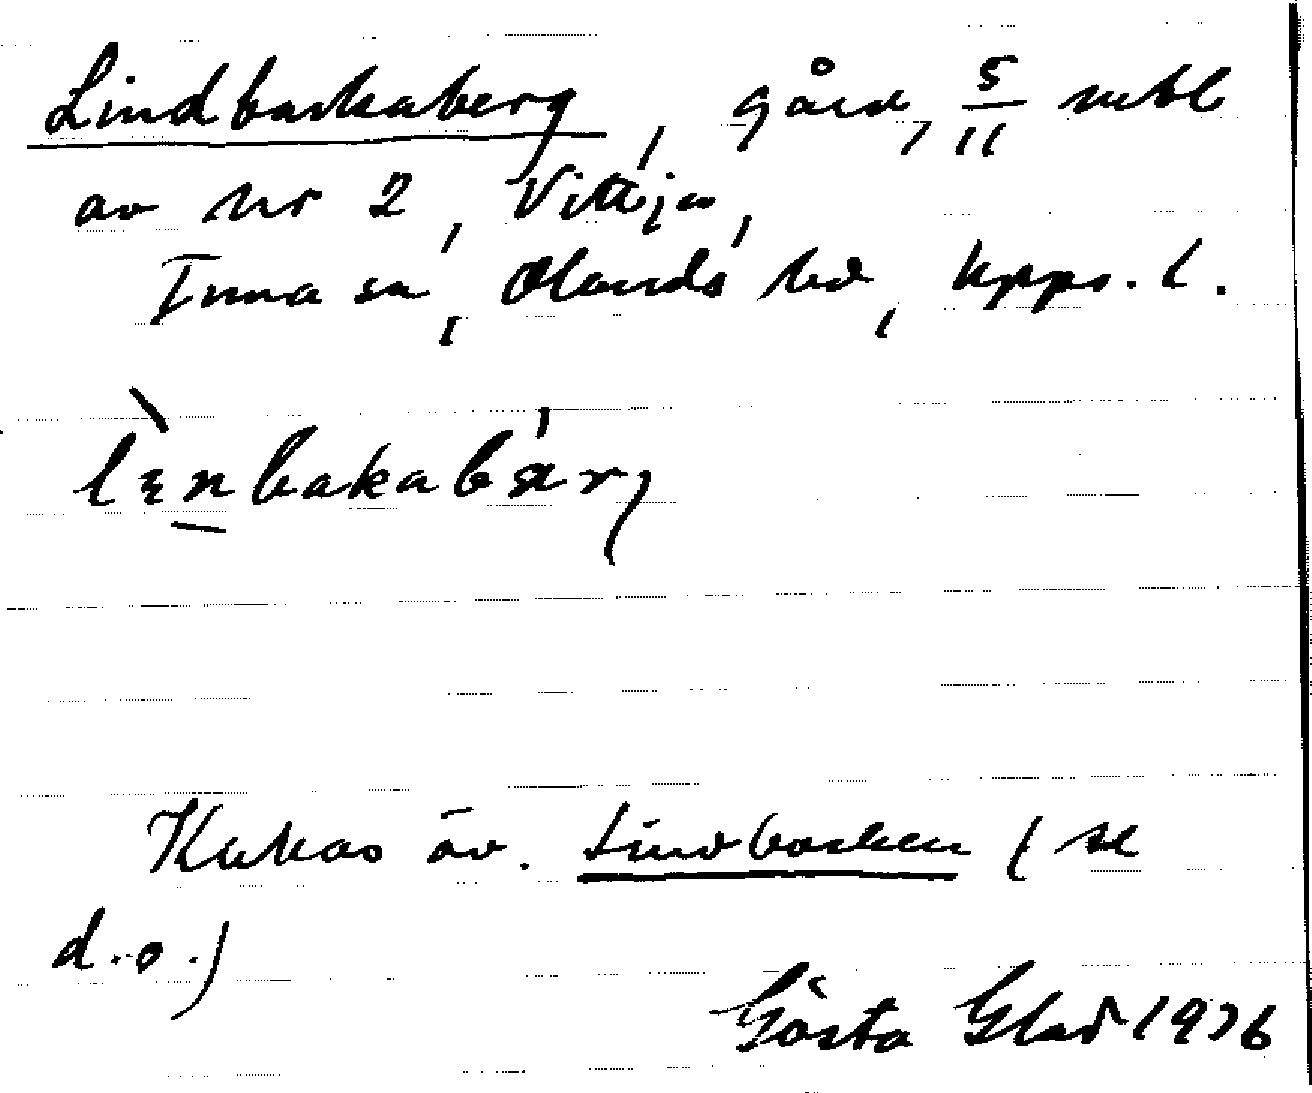 Lindbackaberg, gård, 5/11 mtl
av nr 2, Vittja,
Tuna sn, Olands hd, Upps. l.
lɛ̀nbakabárj
Kallas äv. Lindbacken (se
d.o.)
Gösta Glad 1976